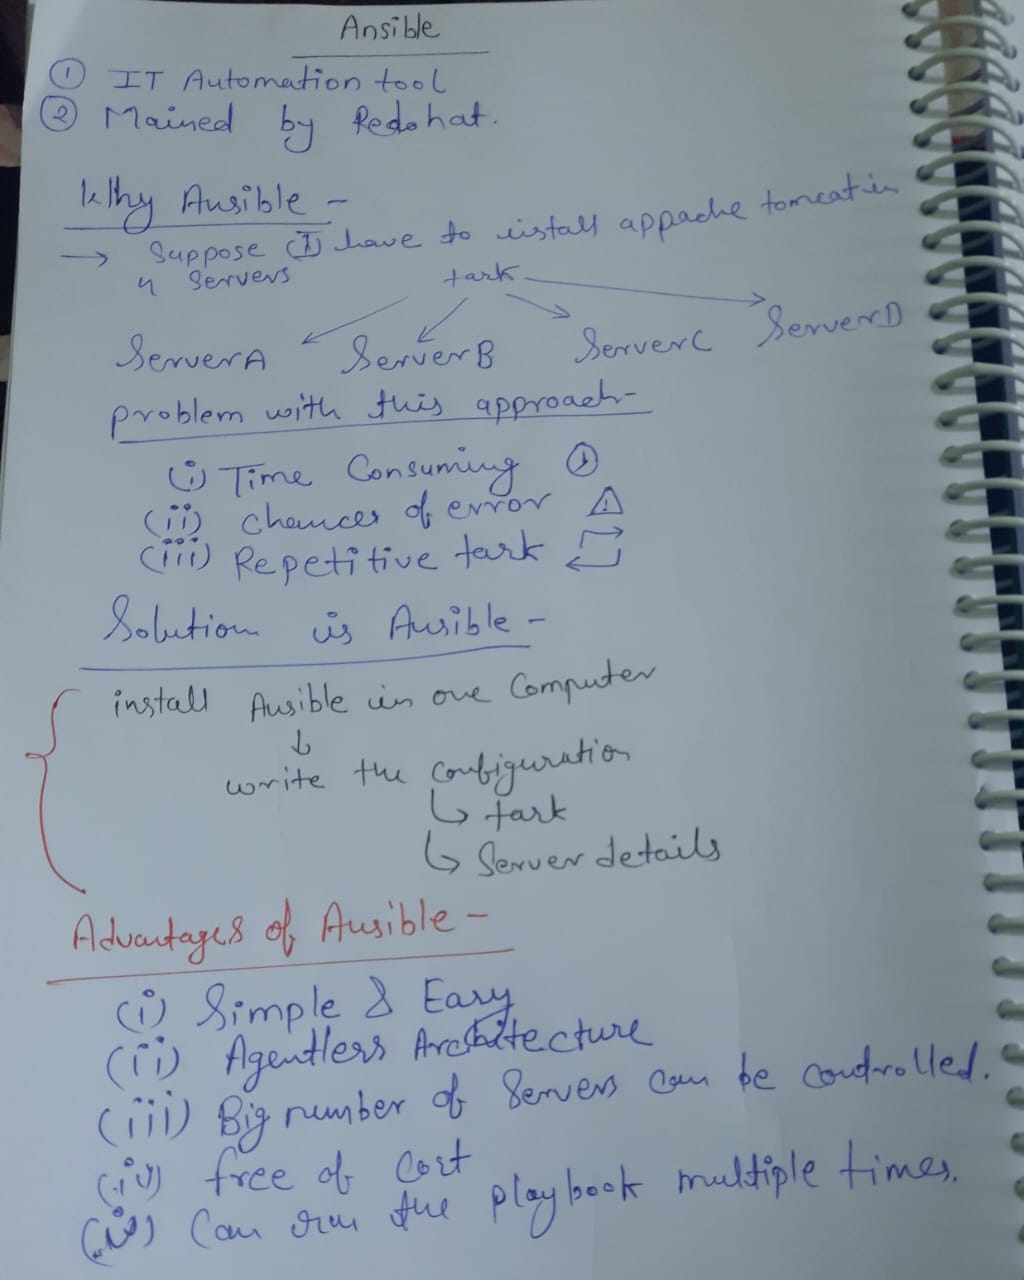 Ansible
① IT Automation tool
② Mained by Redohat.
Why Ansible -
→ Suppose (I) have to install appache tomcat in
4 Servers
task
Server A Server B Server C Server D
problem with this approach-
(i) Time Consuming
(ii) chances of error
(iii) Repetitive task
Solution is Ansible -
install Ansible in one Computer
↓
write the configuration
↳ task
↳ Server details
Advantages of Ansible -
(i) Simple & Easy
(ii) Agentless Architecture
(iii) Big number of Servers can be controlled.
(iv) free of cost
(v) Can run the playbook multiple times.